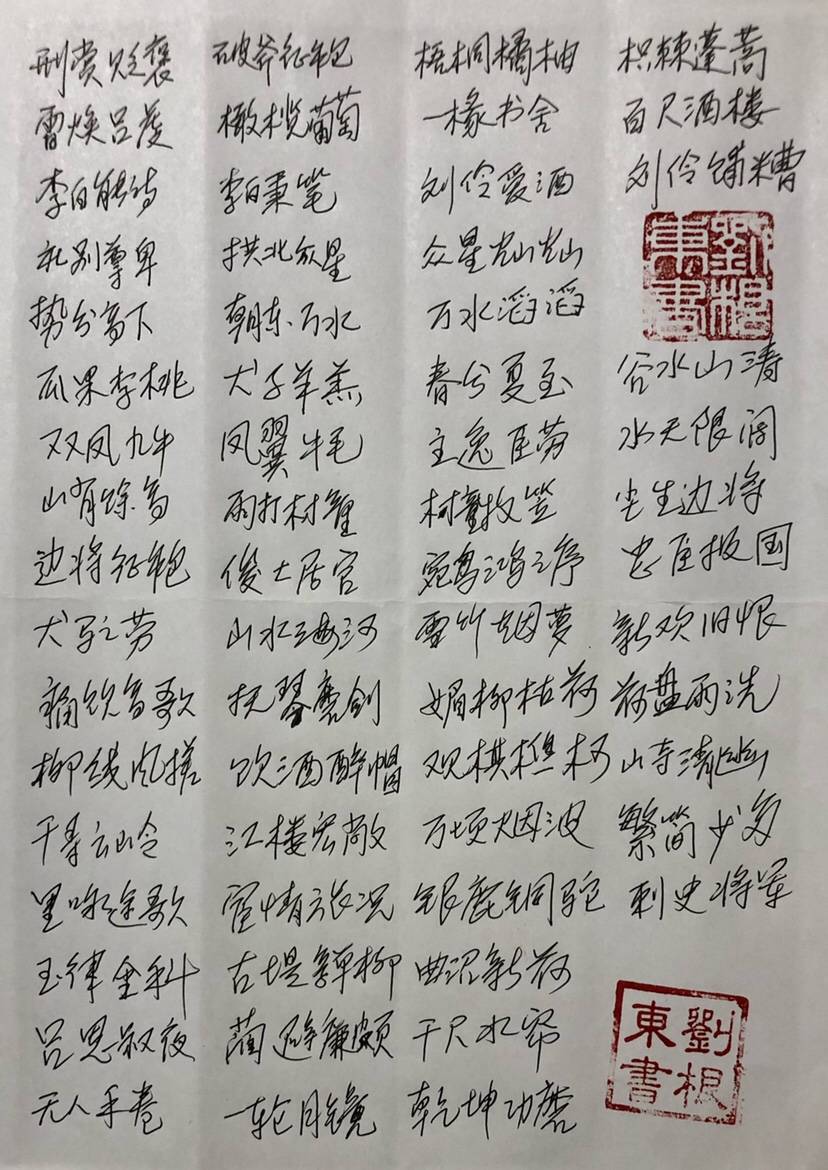 刑赏贬褒 破斧征袍 梧桐橘柚 枳棘蓬蒿
雷焕吕虔 橄榄葡萄 一椽书舍 百尺酒楼
李白能诗 李白秉笔 刘伶爱酒 刘伶餔糟
礼别尊卑 拱北众星 众星灿灿
势分高下 朝东万水 万水滔滔
瓜果李桃 犬子羊羔 春分夏至 谷水山涛
双凤九牛 凤翼牛毛 主逸臣劳 水天限阔
山有 雨打村 村童牧笠 生边将
边将征袍 俊士居官 鸿之序 忠臣报国
犬马之劳 山水海河 雪竹烟萝 新欢旧恨
痛饮高歌 抚琴磨剑 媚柳枯荷 荷盘雨洗
柳线风搓 饮酒醉帽 观棋樵柯 山寺清幽
千寻云岭 江楼宏敞 万顷烟波 繁简少多
里咏途歌 宦情 况 银鹿铜驼 刺史将军
玉律金科 古堤亸柳 曲沼新荷
吕思叔夜 蔺避廉颇 千尺水帘
无人手卷 一轮月镜 乾坤功磨
劉根東書
劉根東書